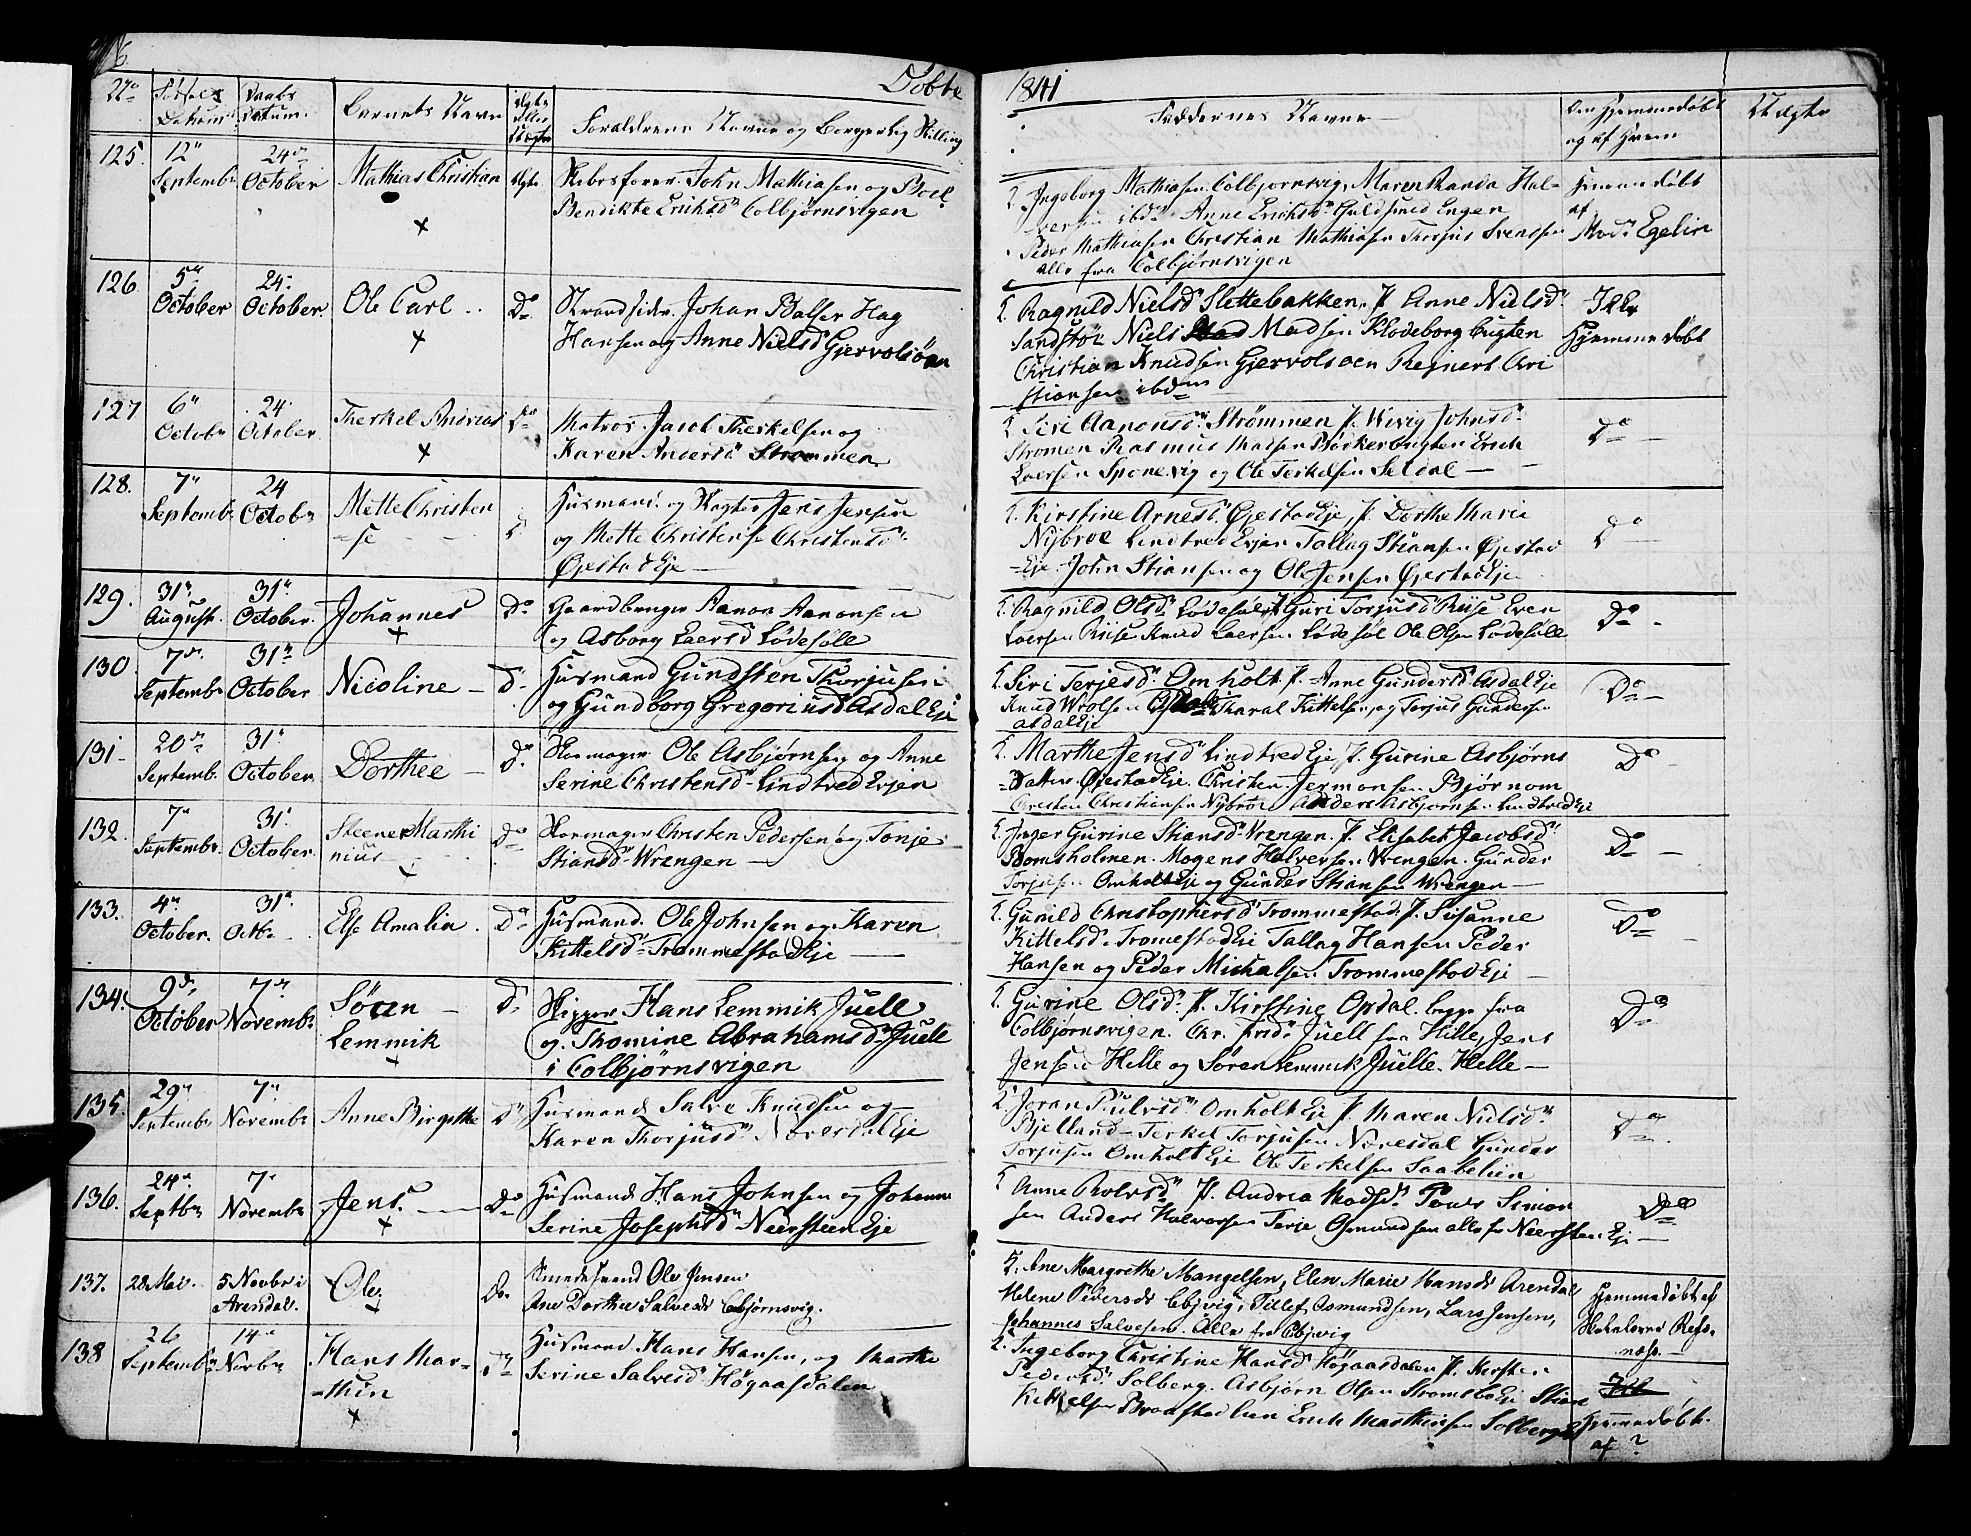 Døbte
1841
No
Fødsels Datum
Daabs Datum
Barnets Navn
Ægte eller Uægte
Foraldrenes Navne og Borgerlig Stilling
Faddernes Navne
Om Hjemmedøbt og af Hvem
Uægte
125. 12" Septembr 24de October Mathias Christian Ægte John Mathiasen og Boel
Bendikte Erichsd Colbjørnsvigen
Ingeborg Mathiasen Colbjornsvig, Maren
ibd. Anne Erichsd Guldsmed Engen
Peder Mathiasen Christian Mathiasen Thorjus Svensen
alle fra Colbjørnsvigen
Hiemmedøbt
af
126 5" October 24. October Ole Carl Do Strandsider Johan Balser Hag
Hansen og Anne Nielsd Gjervolsöen
Ragnild Nielsd Slettebakken, J. Anne Nielsd
Sandstöe Niels Madsen Klodeborg bugten
Christian Knudsen Gjervolsoen Regnert Chri
stiansen ibdm
Ikke
Hjemmedøbt
127 6" Octobr 24. October Therkel Andreas Do Matros Jacob Therkelsen og
Karen Andersd Strommen
Siri Aanonsd Strømmen J. Johnsd
Stromen Rasmus Madsen Erich
Laersen Sponevig og Ole Terkelsen Seldal
Do
128. 7" Septembr 24 Octobr Mette Christen
=se
Husmand og Jens Jensen
og Mette Christense Christensd
Øjestad Eje
Kirstine Arnesd. Øjestad Eje, J. Dorthe Marie
Nybroe Lindtved Ejen Tallag Stiansen Øjestad
=Eje John Stiansen og Ole Jensen Øjestad Eje
Do
129. 31" August. 31" October. Johannes Do Gaardbruger Aanon Aanonsen
og Asborg Laersd Lødesølle
Ragnild Olsd Lødesøl J Guri Torjusd Riise Even
Laersen Riise Knud Laersen Lødesøl Ole Olsen Lødesølle
Do
130 7de Septembr 31" October Nicoline Do Husmand Gundsten Thorjusen
og Gundborg Gregoriusd Asdal Eje
Siri Terjesd Omholt J. Anne Gundersd Asdal Eje
Knud Wrolsen Tharal Kittelsen, og Torjus Gundersen
Asdal Eje
Do
131 20de Septembr. 31" October. Dorthee Do Skomager Ole Asbjørnsen og Anne
Serine Christensd Lindtved Ejen
Marthe Jensd Lindtved Eje, J. Gurine Asbjørns
=Datter Øjestad Eje. Christen Jermonsen Bjørnom
Christen Christiansen Nybroe Anders Asbjørnsen Lindtved Eje
Do
132. 7" Septembr. 31" October. Steener Marthi
nius
Do Skomager Christen Pedersen og Tonje
Stiansd Wrengen
Inger Gurine Stiansd Wrengen. J. Elisabet Jacobsd
Romsholmen. Mogens Halversen Wrengen. Gunder
Torjusen Omholt Eje og Gunder Stiansen Wrengen
Do
133. 4" October. 31" Octbr Else Amalia Do Husmand. Ole Johnsen og Karen
Kittelsd Trommestad Eje
Gunild Christophersd Trommestad, J. Susanne
Kittelsd. Tromestad Eje Tallag Hansen Peder
Hansen og Peder Michalsen Trommestad Eje
Do
134. 9de October 7de Novembr Søren
Lemmik
Do Skipper Hans Lemmik Juell
og Thomine Abrahamsd Juell
i Colbjørnsvigen
Gurine Olsd. J. Kirstine Opdal begge fra
Colbjørnsvigen. Chr. Juell fra Hille, Jens
Jensen Helle og Søren Lemmik Juelle Helle
Do
135. 29" Septembr 7" Novembr Anne Birgitthe Do Husmand Salve Knudsen og
Karen Thorjusd Næresdal Eje
Joran Omholt Eje J. Maren Nielsd
Bjelland Terkel Torjusen Næresdal Gunder
Torjusen Omholt Eje Ole Terkelsen
Do
136. 24de Septbr 7. Novembr Jens. Do Husmand Hans Johnsen og Johanne
Serine Josephsd Neersteen Eje
Anne J. Andrea Madsd. Simon
sen Anders Halvorsen Terje Osmundsen alle fr Neersten Eje
Do
137. 28 Mai. 5 Novbr i
Arendal.
Ole Do Ole Jensen
Ane Dorthee Salvesdr Cbjørnsvig.
Ane Margrethe Mangelsen, Elen Marie Hansdr Arendal
Helene Pedersdr Cbjvig, Tellef Osmundsen, Lars Jensen,
Johannes Salvesen. Alle fra Cbjvig
Hjemmedøbt af
138 26 Septembr 14de Novbr Hans Mar=
=thin
Do Husmand Hans Hansen, og Marthe
Serine Salvesd Högaasdalen
Ingeborg Christine Hansd Högaasdalen J. Kirsten
Pedersd. Solberg. Asbjørn Olsen Stromsbo Eje Stian
Kittelsen Erich Matthisen Solberg
Hjemmedøbt.
af ?